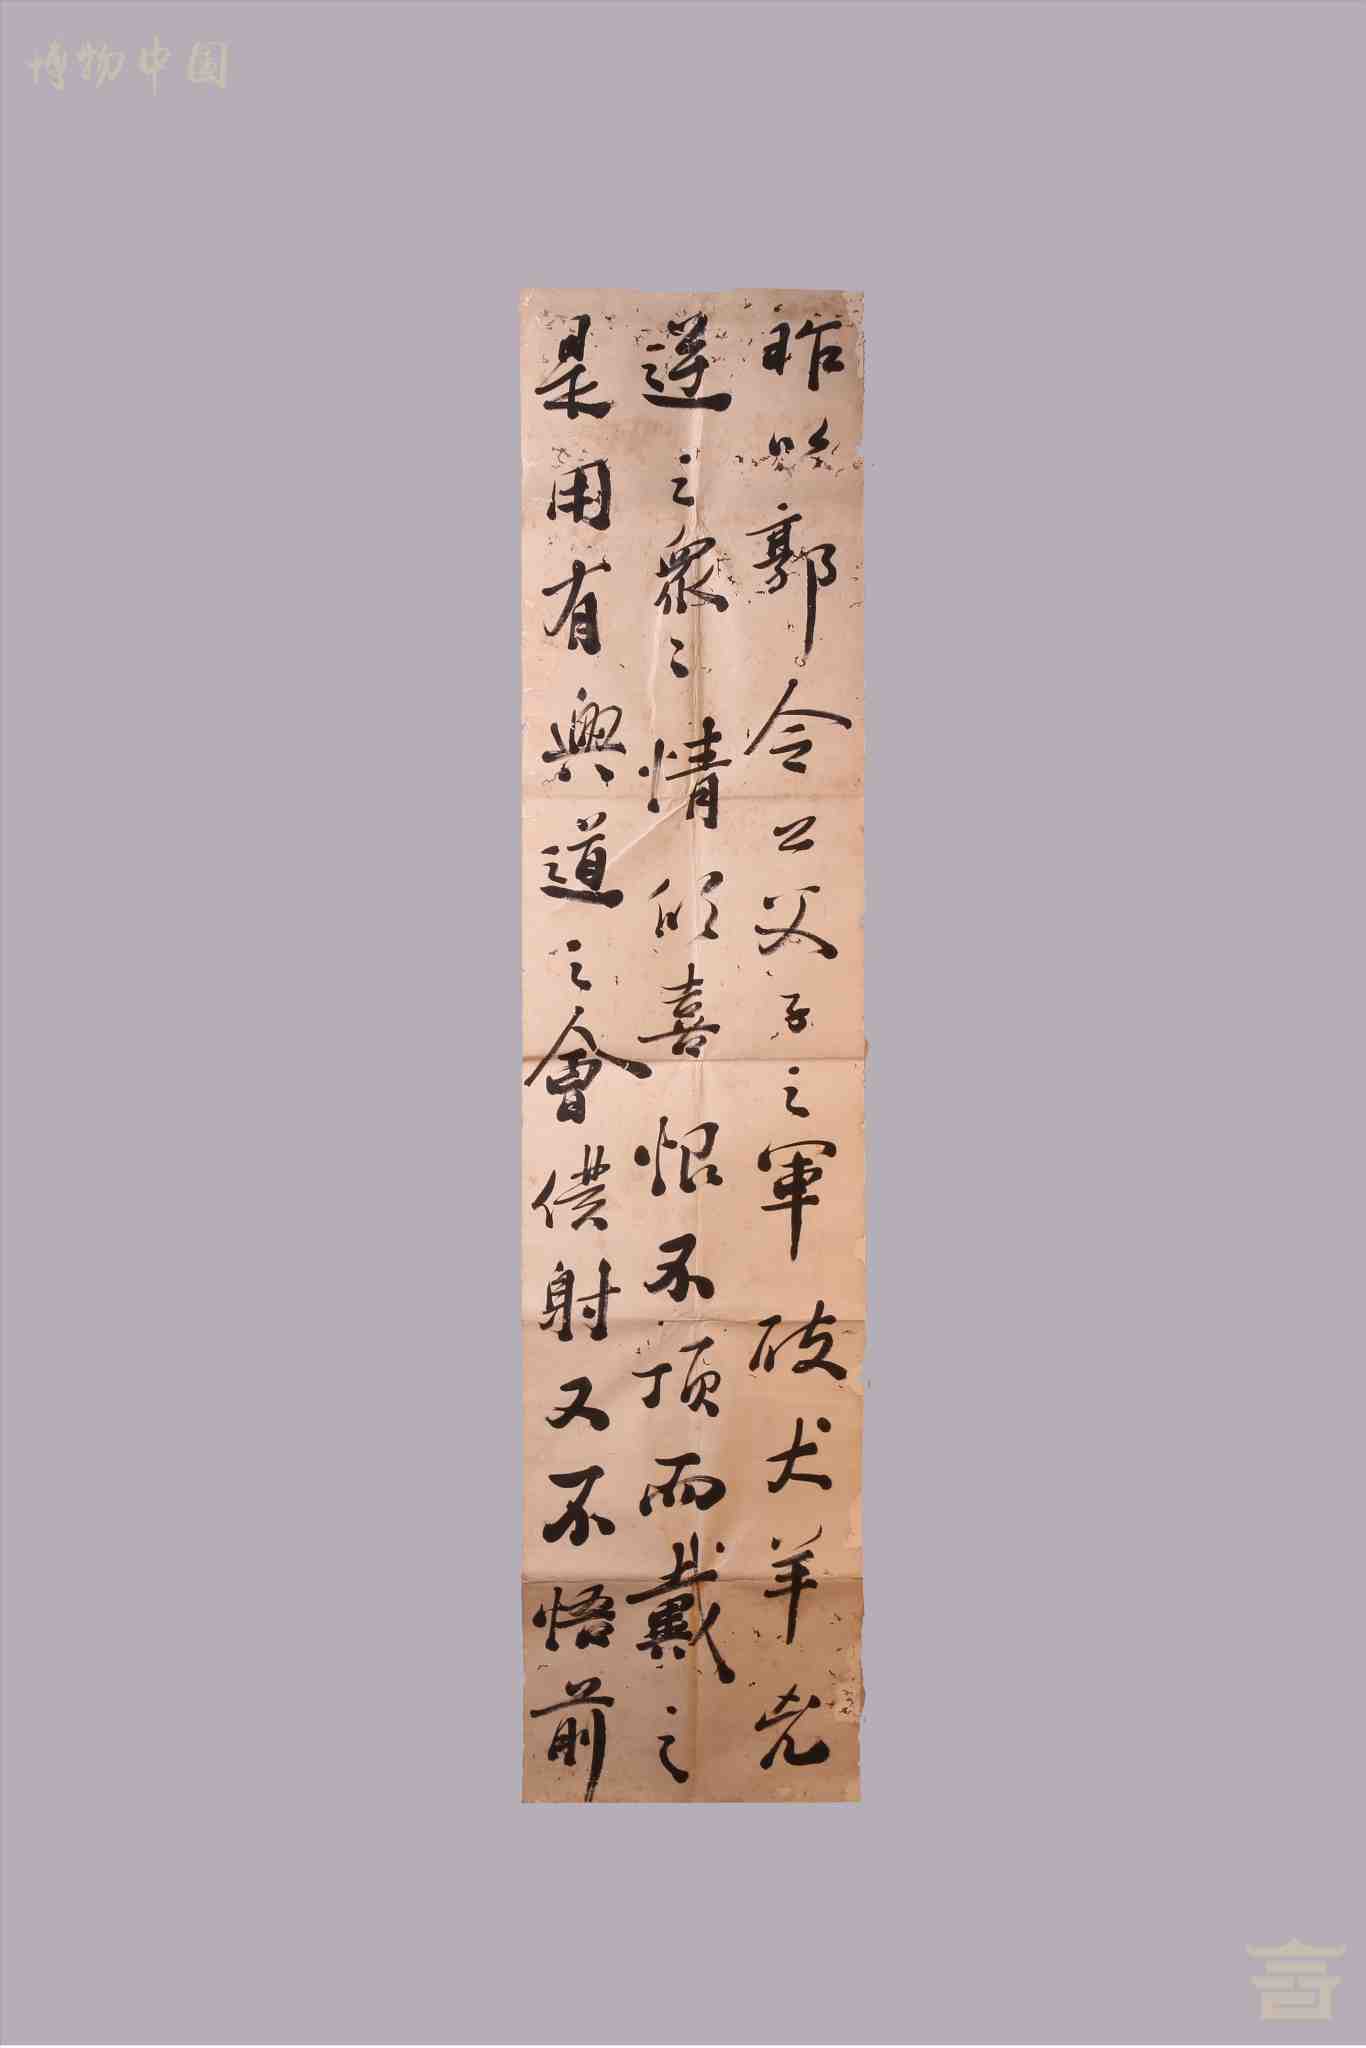 博物中国
昨以郭令公父子之軍破犬羊兇
逆之衆之情欣喜恨不頂而戴之
是用有興道之會僕射又不悟前